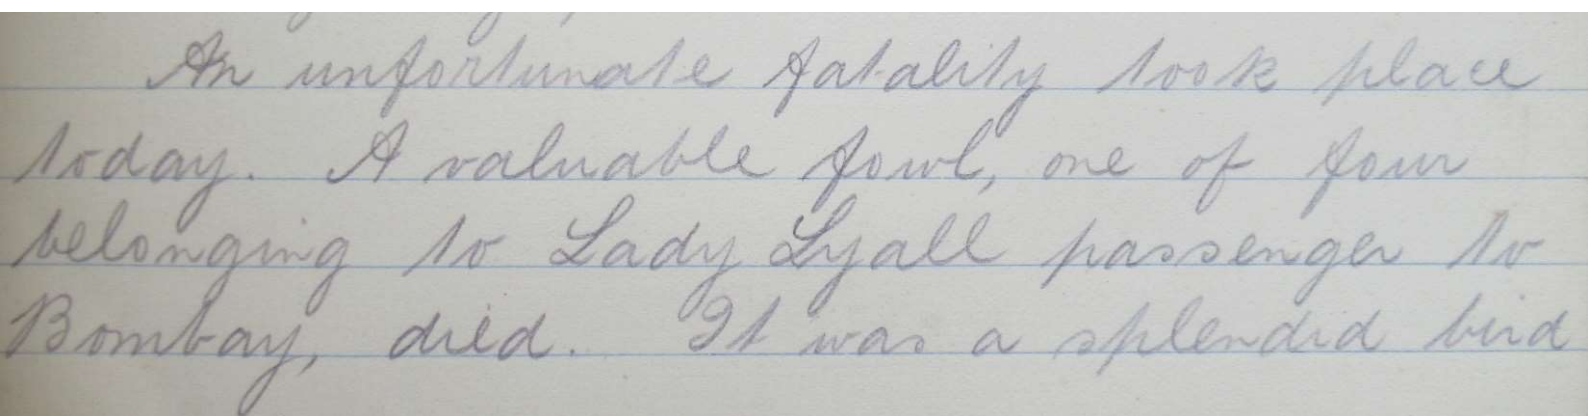 An unfortunate fatality took place
today. A valuable fowl, one of four
belonging to Lady Lyall passenger to
Bombay, died. It was a splendid bird